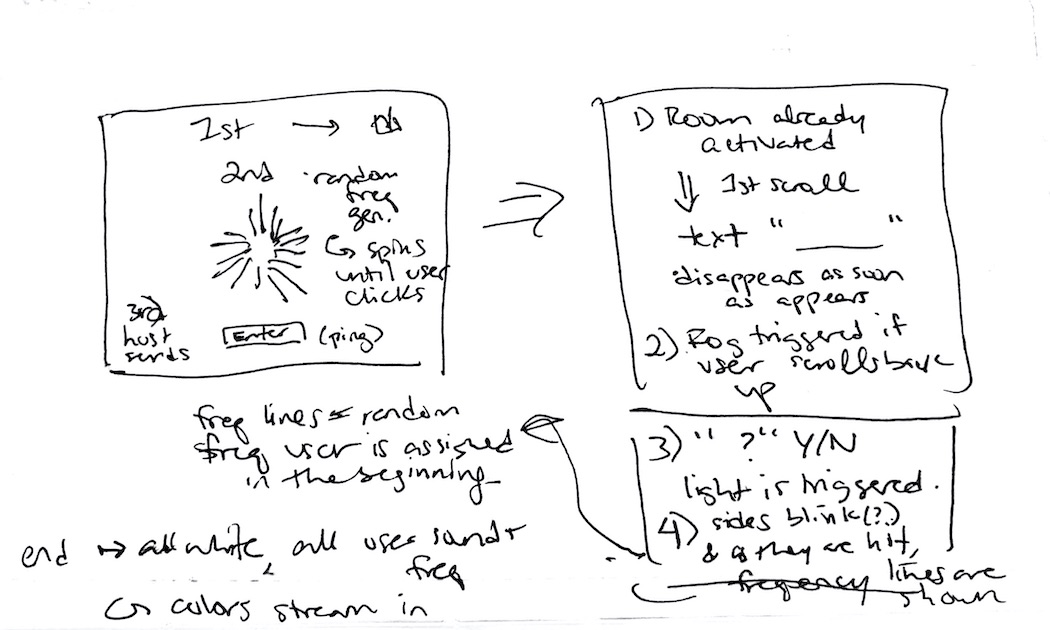 1st →
2nd
· random
freq
gen.
↳ spins
until user
clicks
3rd
host
sends
Enter (ping)
freq lines = random
freq user is assigned
in the beginning
end → all white, all user sound +
freq
↳ colors stream in
1) Room already
activated
⇓ 1st scroll
text " ______ "
· disappears as soon
as appears
2) triggered if
user scrolls back
up
3) " ? " Y/N
light is triggered.
4) sides blink (?)
& as they are hit,
frequency lines are
shown